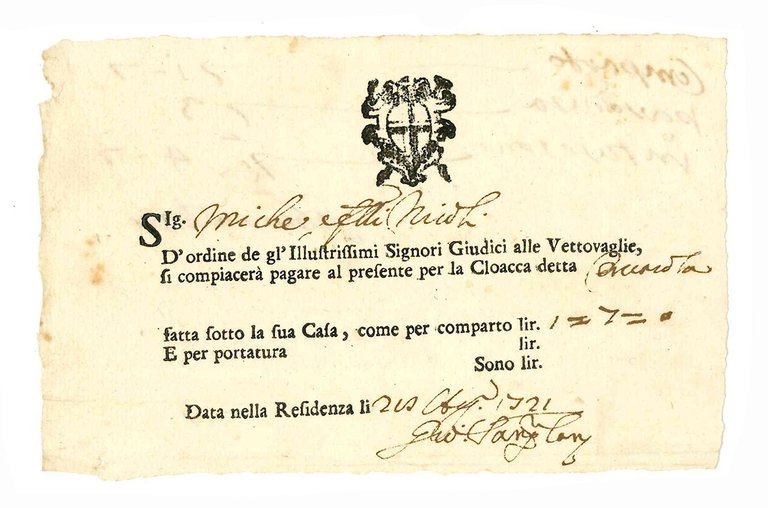 SIg. Miche e flli Nicoli
D'ordine de gl'Illuſtriſſimi Signori Giudici alle Vettovaglie,
ſi compiacerà pagare al preſente per la Cloacca detta
fatta ſotto la ſua Caſa, come per comparto lir. 1 = 7 = 0
E per portatura lir.
Sono lir.
Data nella Reſidenza li 21 1721